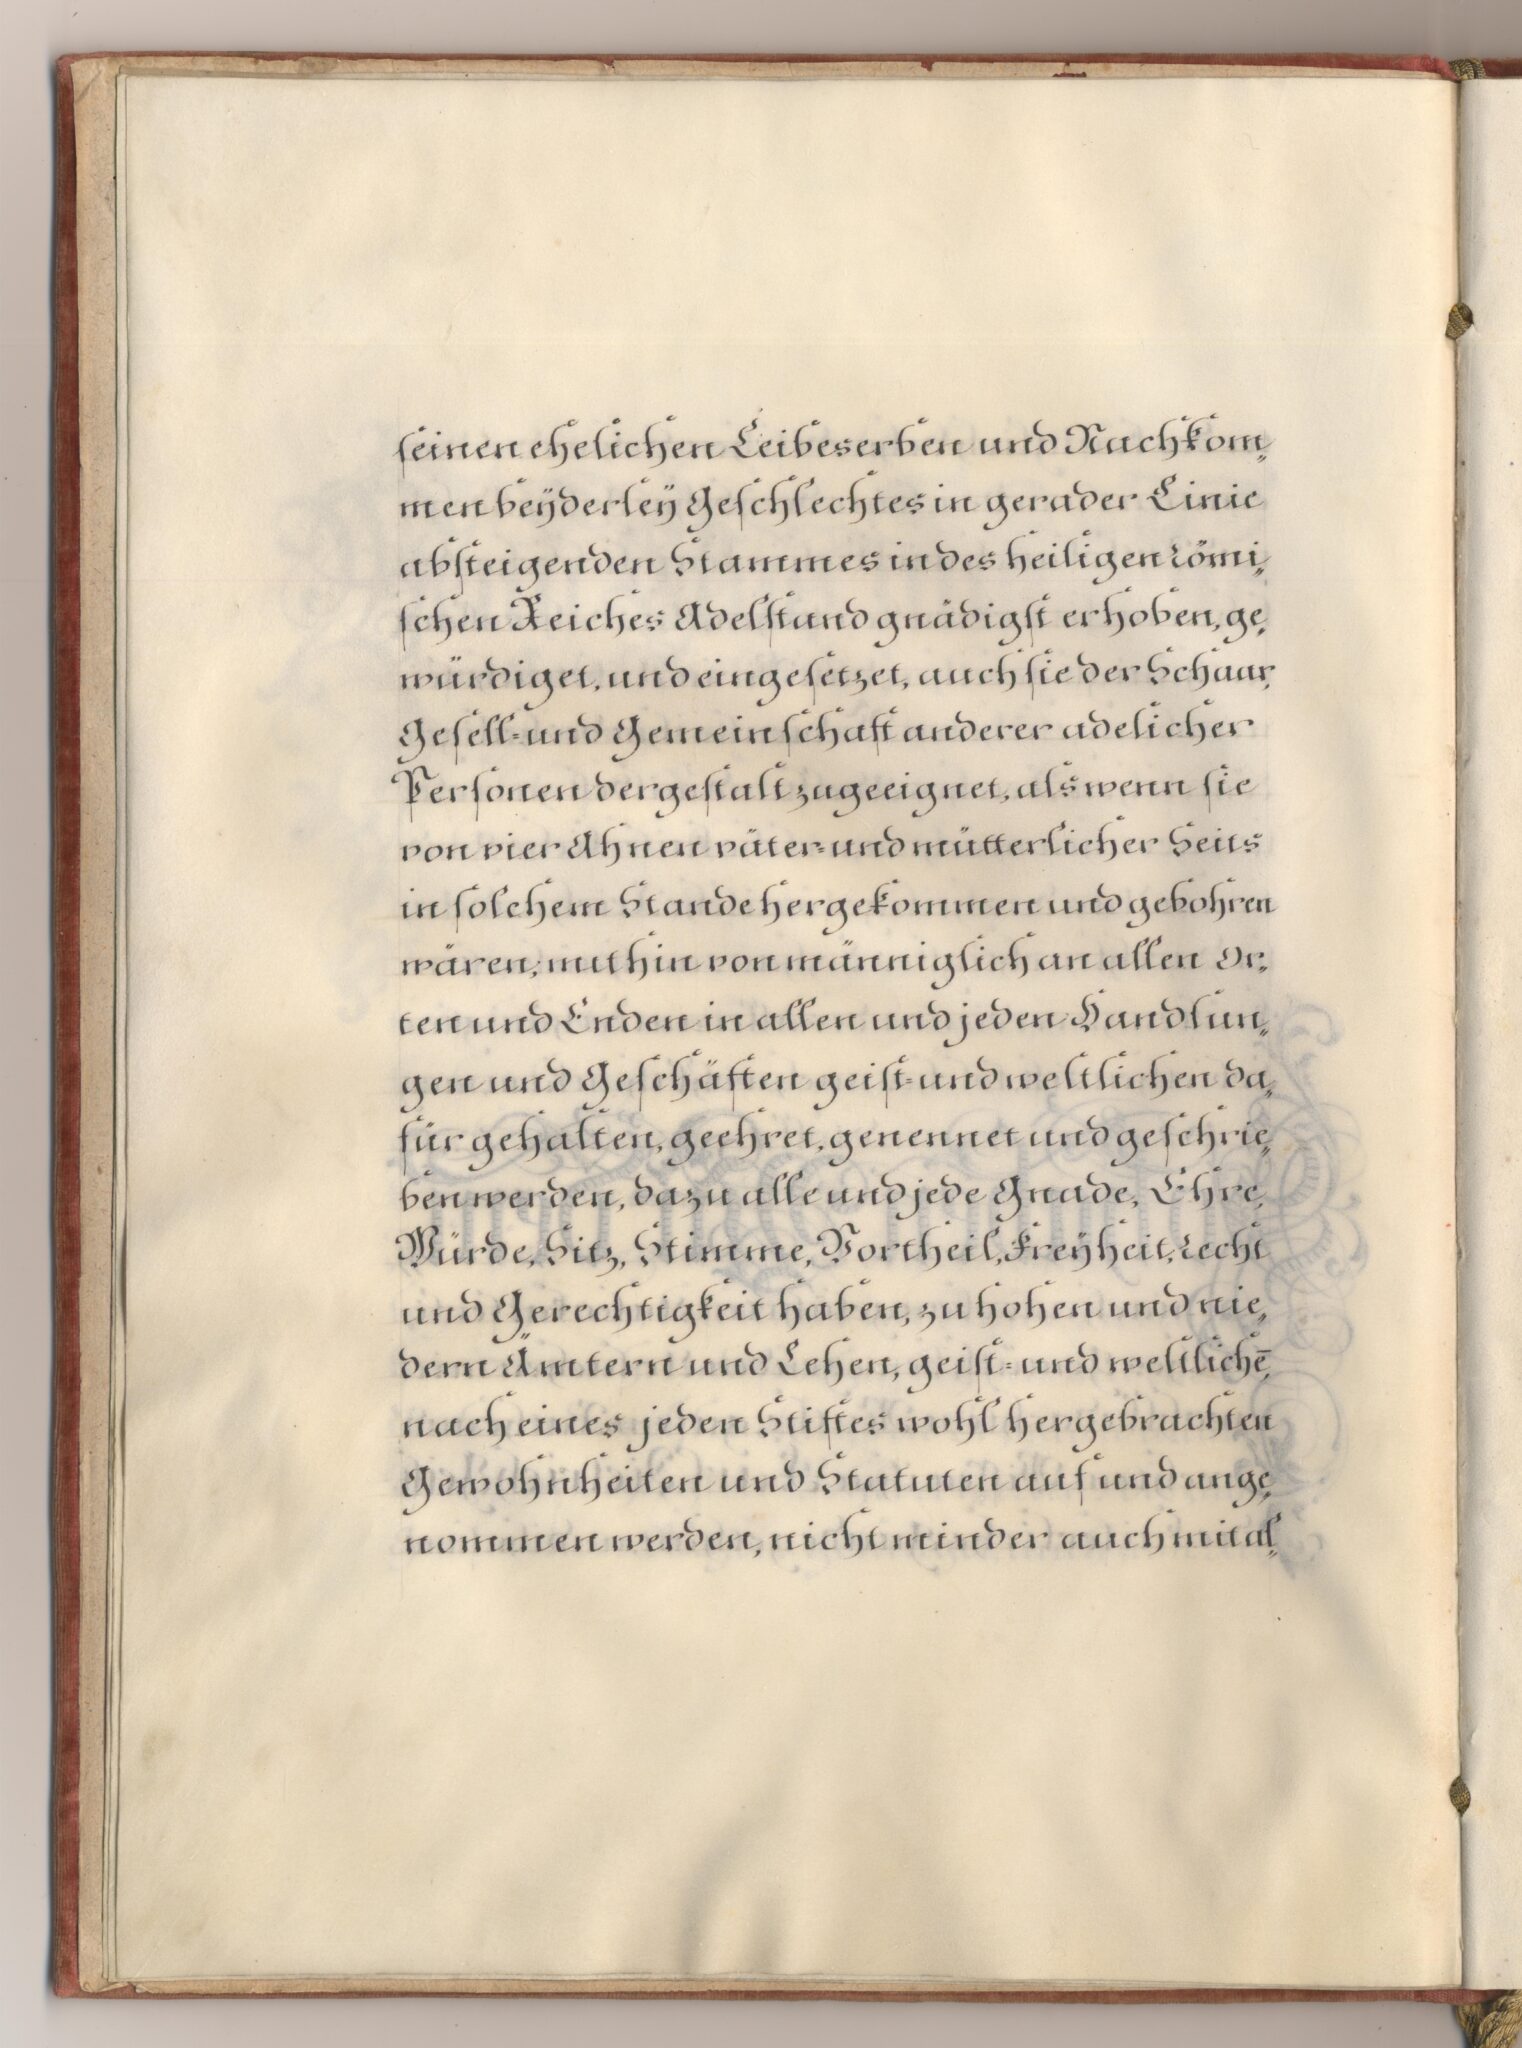 seinen ehelichen Leibeserben und Nachkom„
men beÿderleÿ Geschlechtes in gerader Linie
absteigenden Stammes in des heiligen römi„
schen Reiches Adelstand gnädigst erhoben, ge„
würdiget, und eingesetzet, auch sie der Schaar,
Gesell= und Gemeinschaft anderer adelicher
Personen dergestalt zugeeignet, als wenn sie
von vier Ahnen väter= und mütterlicher Seits
in solchem Stande hergekommen und gebohren
wären; mithin von männiglich an allen Or„
ten und Enden in allen und jeden Handlun„
gen und Geschäften geist= und weltlichen da„
für gehalten, geehret, genennet und geschrie„
ben werden, dazu alle und jede Gnade, Ehre,
Würde, Sitz, Stimme, Vortheil, Freÿheit, recht
und Gerechtigkeit haben, zu hohen und nie„
dern Ämtern und Lehen, geist= und weltlichē,
nach eines jeden Stiftes wohl hergebrachten
Gewohnheiten und Statuten auf und ange„
nommen werden, nicht minder auch mit al„